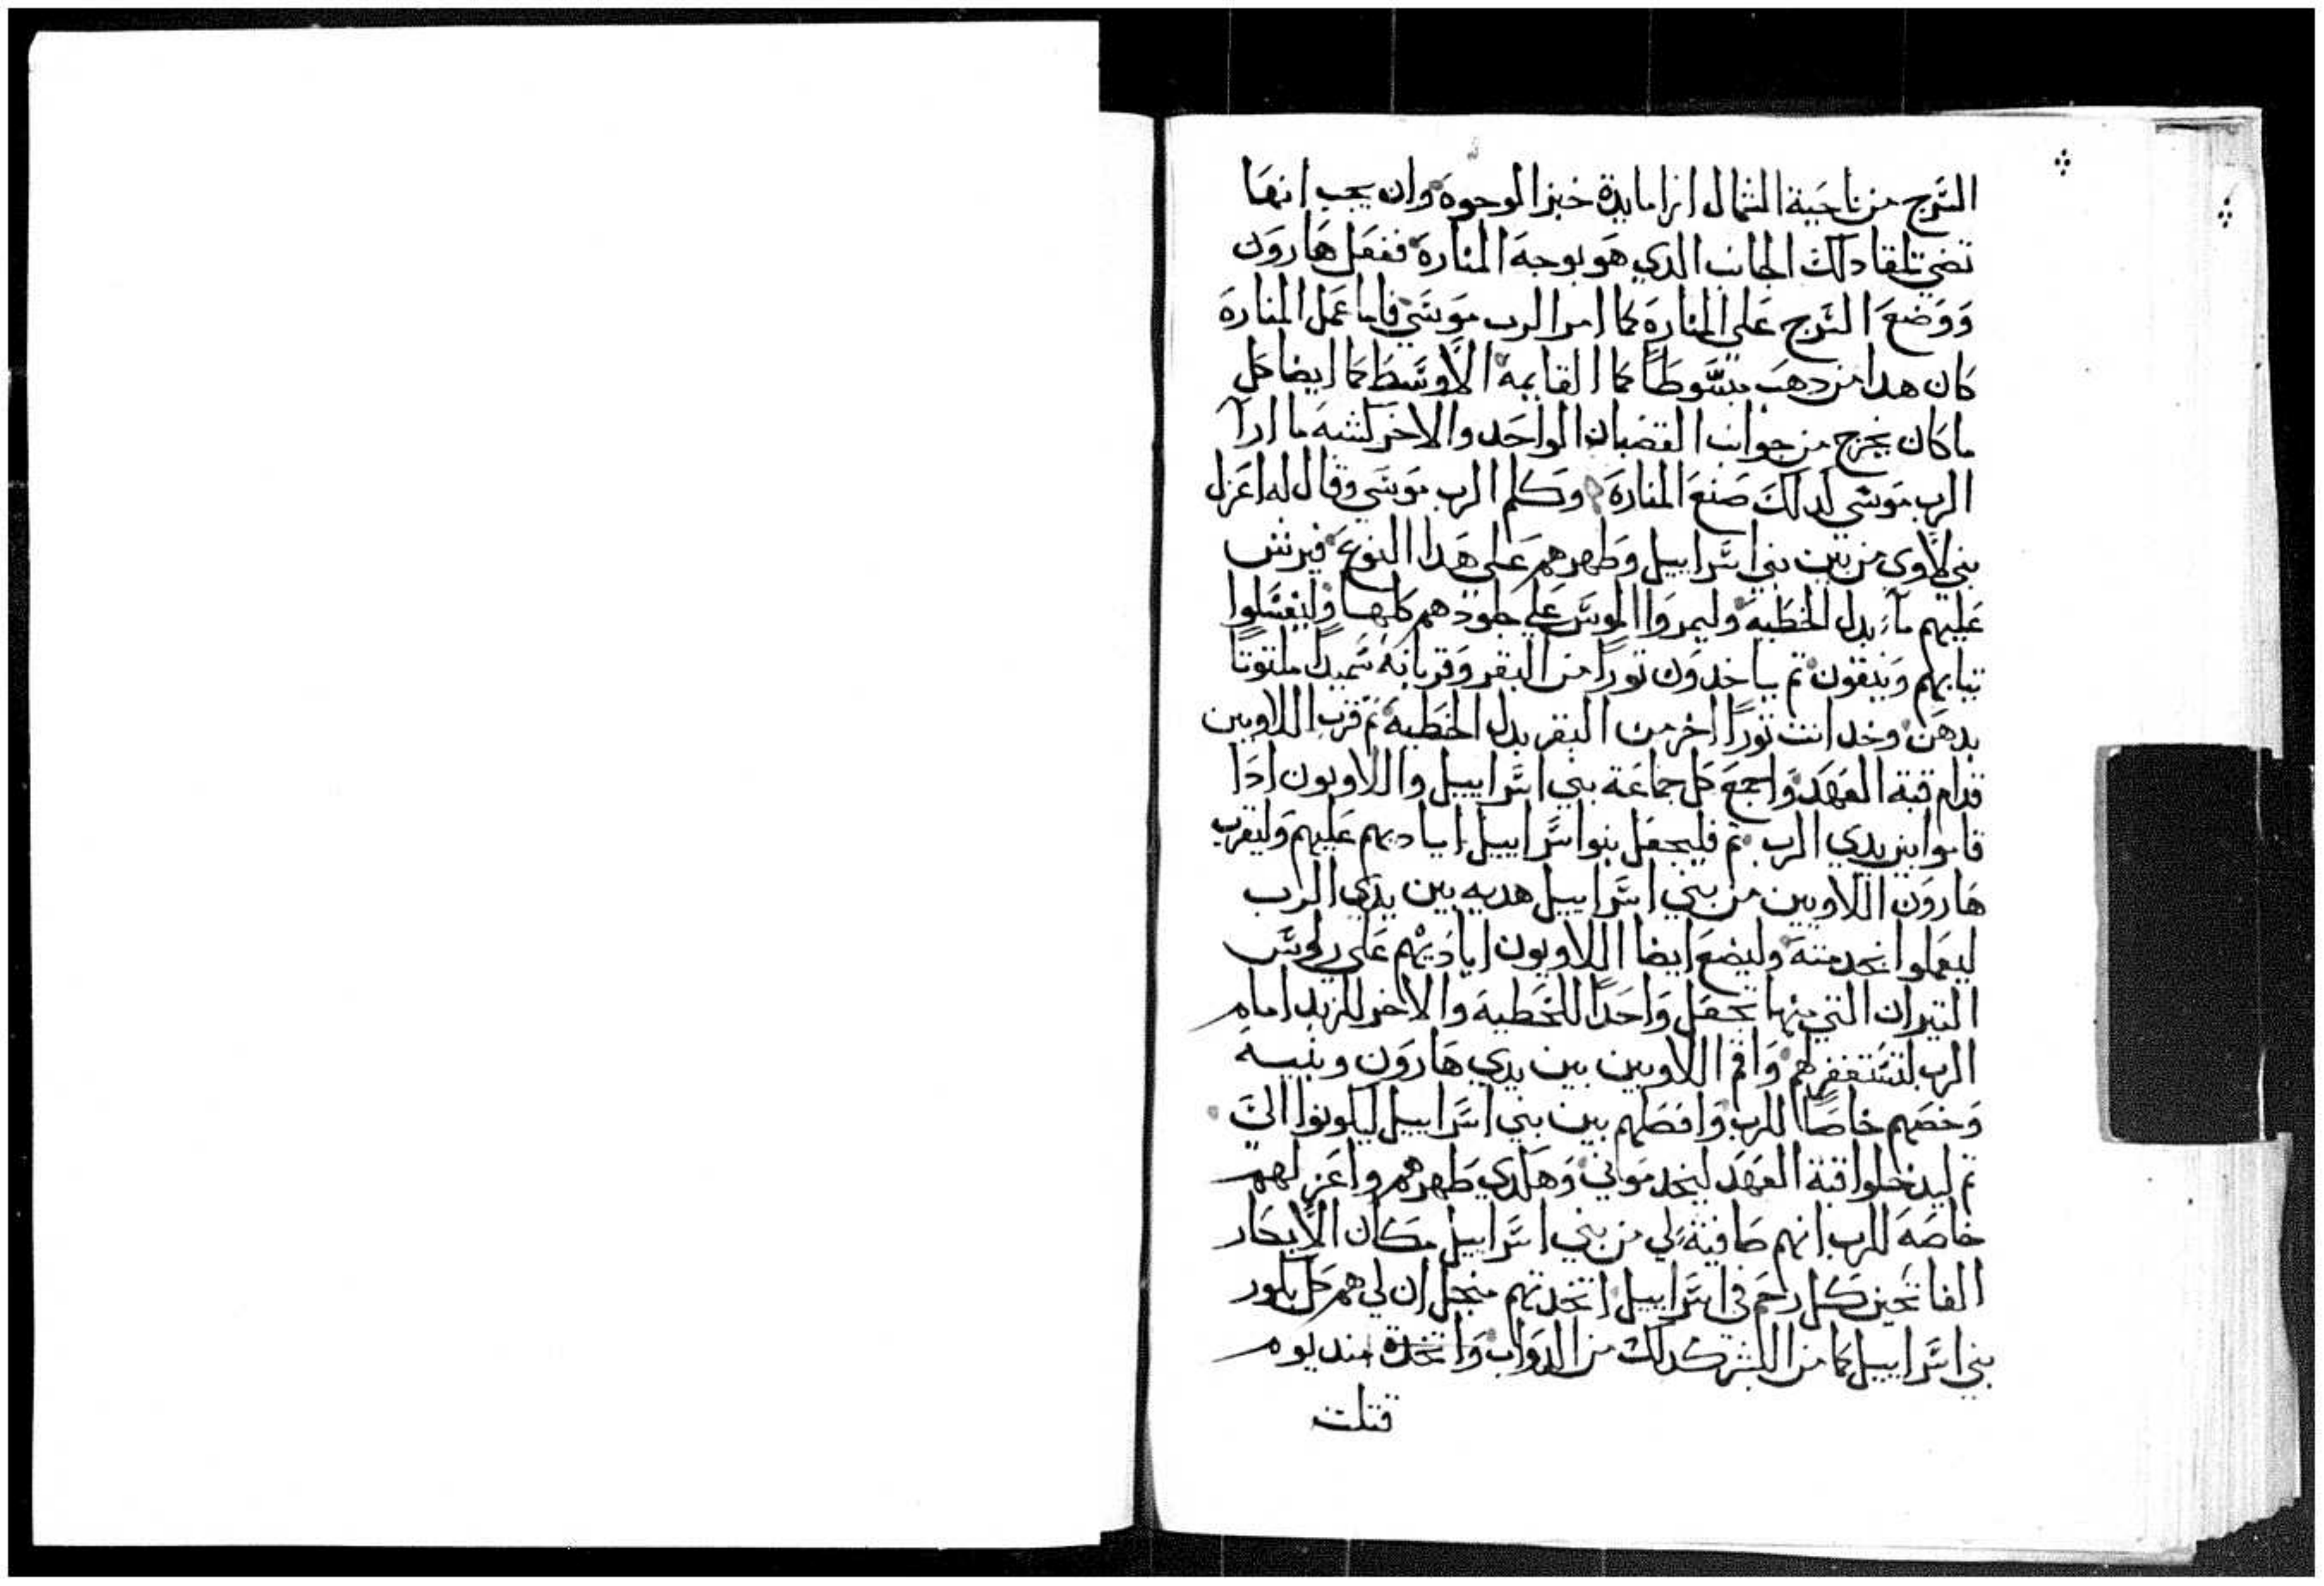 السرج من ناحية الشمال ازا مايدة خبز الوجوه وان يجب انها
تضي تلقا دلك الجانب الدي هو بوجه المناره ففعل هارون
ووضع السرج علي المناره كما امر الرب موسي فاما عمل المناره
كان هدا من دهب مبسوطا كما القايمه الاوسط كما ايضا كل
ما كان يخرج من جوانب القضبان الواحد والاخر كشبه ما ارا
الرب موسي لدلك صنع المناره وكلم الرب موسي وقال له اعزل
بني لاوي من بين بني اسراييل وطهرهم علي هدا النوع فيرش
عليهم ماء بدل الخطيه وليمروا الموس علي جلودهم كلها وليغسلوا
تيابهم وينقون تم ياخدون تورا من البقر وقربانه سميدا ملتوتا
بدهن وخد انت تورا اخر من البقر بدل الخطيه تم قرب اللاويين
قدام قبة العهد واجمع كل جماعة بني اسراييل واللاويون ادا
قاموا بين يدي الرب تم فليجعل بنوا اسراييل اياديهم عليهم وليقرب
هارون اللاويين من بني اسراييل هديه بين يدي الرب
ليعملوا بخدمته وليضع ايضا اللاويون اياديهم علي رووس
التيران التي منهما تجعل واحدا للخطيه والاخر للزبد امام
الرب لتستغفر لهم واقم اللاويين بين يدي هارون وبنيه
وخصهم خاصا للرب وافصلهم بين بني اسراييل ليكونوا الي
تم ليدخلوا قبة العهد ليخدموني وهكدي طهرهم واعزلهم
خاصه للرب انهم صافية لي من بني اسراييل مكان الابكار
الفاتحين كل رحم في اسراييل اتخدتهم منجل ان لي هم كل بكور
بني اسراييل كما من البشر كدلك من الدواب واتخدة مند يوم
قتلت